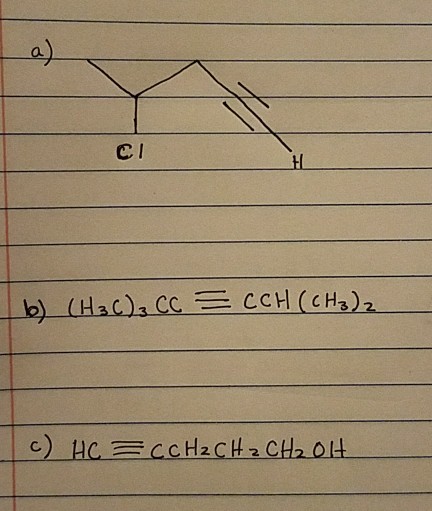 a)
Cl
H
b) (H₃C)₃CC≡CCH(CH₃)₂
c) HC≡CCH₂CH₂CH₂OH